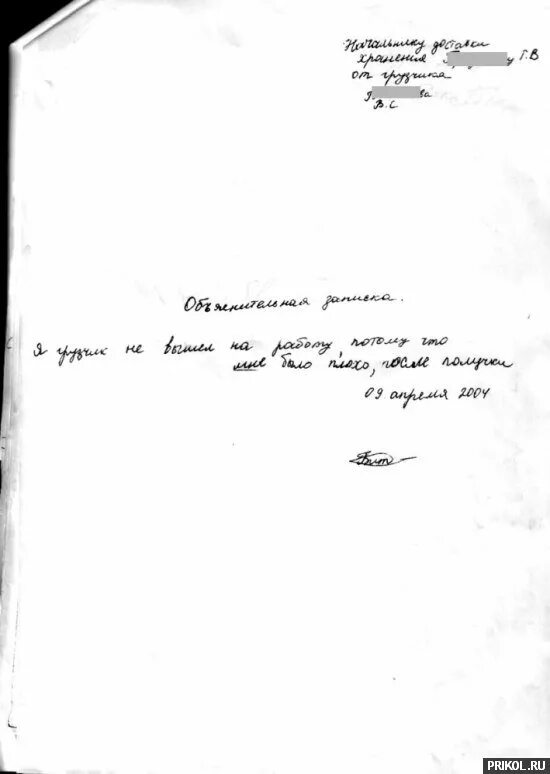 Начальнику доставки
хранения Г.В
от грузчика
В.С
Объяснительная записка.
Я грузчик не вышел на работу, потому что
мне было плохо, после получки
09 апреля 2004
PRIKOL.RU